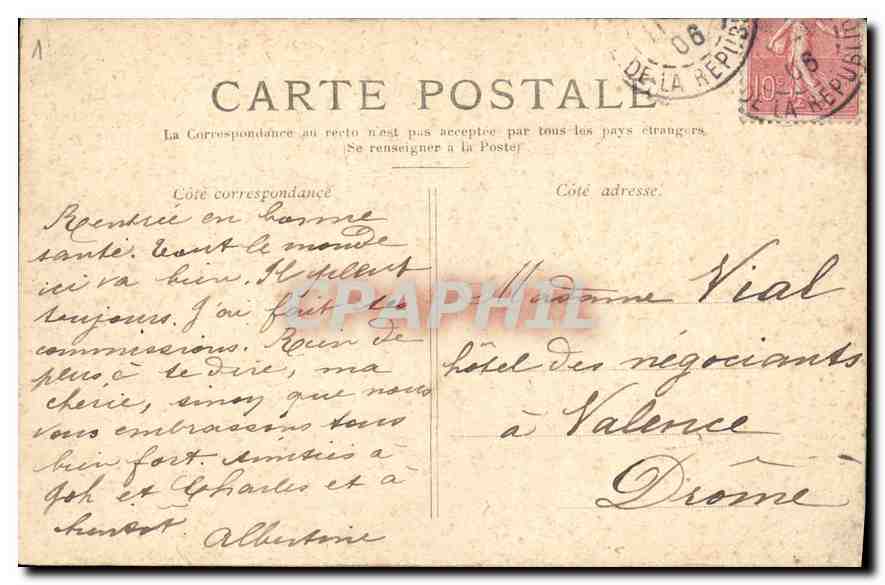 1
06
DE LA REPUB
10c
06
E LA REPUBLIQ
CARTE POSTALE
La Correspondance au recto n'est pas acceptée par tous les pays étrangers
(Se renseigner à la Poste)
Côté correspondance
Côté adresse.
Rentrée en bonne
santé. Tout le monde
ici va bien. Il pleut
toujours. J'ai fait tes
commissions. Rien de
plus à te dire, ma
chérie, sinon que nous
vous embrassons tous
bien fort. Amitiés à
et Charles et à
bientôt.
Albertine
Madame Vial
hôtel des négociants
à Valence
Drôme
CPAPHIL